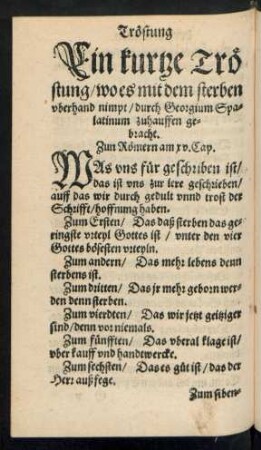 Tröstung
Ein kurtze Trö
stung/wo es mit dem sterben
vberhand nimpt/durch Georgium Spa-
latinum zuhauffen ge-
bracht.
Zun Römern am xv. Cap.
WAs vns für geschriben ist/
das ist vns zur lere geschrieben/
auff das wir durch gedult vnnd trost der
Schrifft/hoffnung haben.
Zum Ersten/ Das daß sterben das ge-
ringste vrteyl Gottes ist/ vnter den vier
Gottes bösesten vrteyln.
Zum andern/ Das mehr lebens denn
sterbens ist.
Zum dritten/ Das jr mehr geborn wer-
den denn sterben.
Zum vierdten/ Das wir jetzt geitziger
sind/denn vor niemals.
Zum fünfften/ Das vberal klage ist/
vber kauff vnd handtwercke.
Zum sechsten/ Das es güt ist/das der
Herr auß fege.
Zum siben-